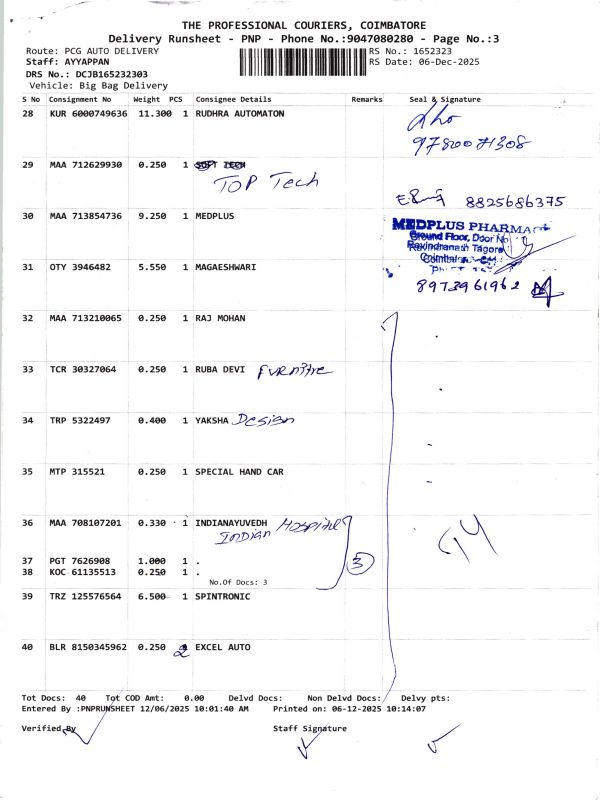 THE PROFESSIONAL COURIERS, COIMBATORE
Delivery Runsheet - PNP - Phone No.:9047080280 - Page No.:3
Route: PCG AUTO DELIVERY RS No.: 1652323
Staff: AYYAPPAN RS Date: 06-Dec-2025
DRS No.: DCJB165232303
Vehicle: Big Bag Delivery
S No Consignment No Weight PCS Consignee Details Remarks Seal & Signature
28 KUR 6000749636 11.300 1 RUDHRA AUTOMATON
29 MAA 712629930 0.250 1 SOFT TECH
TOP Tech
8825686375
30 MAA 713854736 9.250 1 MEDPLUS
MEDPLUS PHARMA
Ground Floor, Door No
Ravindranath Tagore
31 OTY 3946482 5.550 1 MAGAESHWARI
8973961962
32 MAA 713210065 0.250 1 RAJ MOHAN
33 TCR 30327064 0.250 1 RUBA DEVI Furnitre
34 TRP 5322497 0.400 1 YAKSHA Design
35 MTP 315521 0.250 1 SPECIAL HAND CAR
36 MAA 708107201 0.330 1 INDIANAYUVEDH Hospitel
Indian
37 PGT 7626908 1.000 1 .
38 KOC 61135513 0.250 1 .
3
No.Of Docs: 3
39 TRZ 125576564 6.500 1 SPINTRONIC
40 BLR 8150345962 0.250 2 EXCEL AUTO
Tot Docs: 40 Tot COD Amt: 0.00 Delvd Docs: Non Delvd Docs: Delvy pts:
Entered By :PNPRUNSHEET 12/06/2025 10:01:40 AM Printed on: 06-12-2025 10:14:07
Verified By Staff Signature